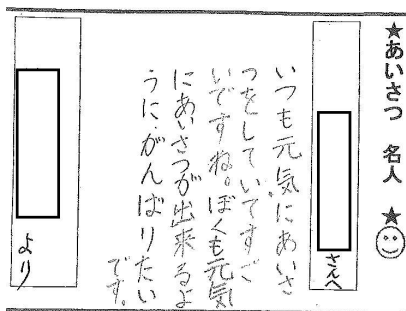 ★あいさつ 名人 ★
さんへ
いつも元気にあいさ
つをしていてすご
いですね。ぼくも元気
にあいさつが出来るよ
うに、がんばりたい
です。
より